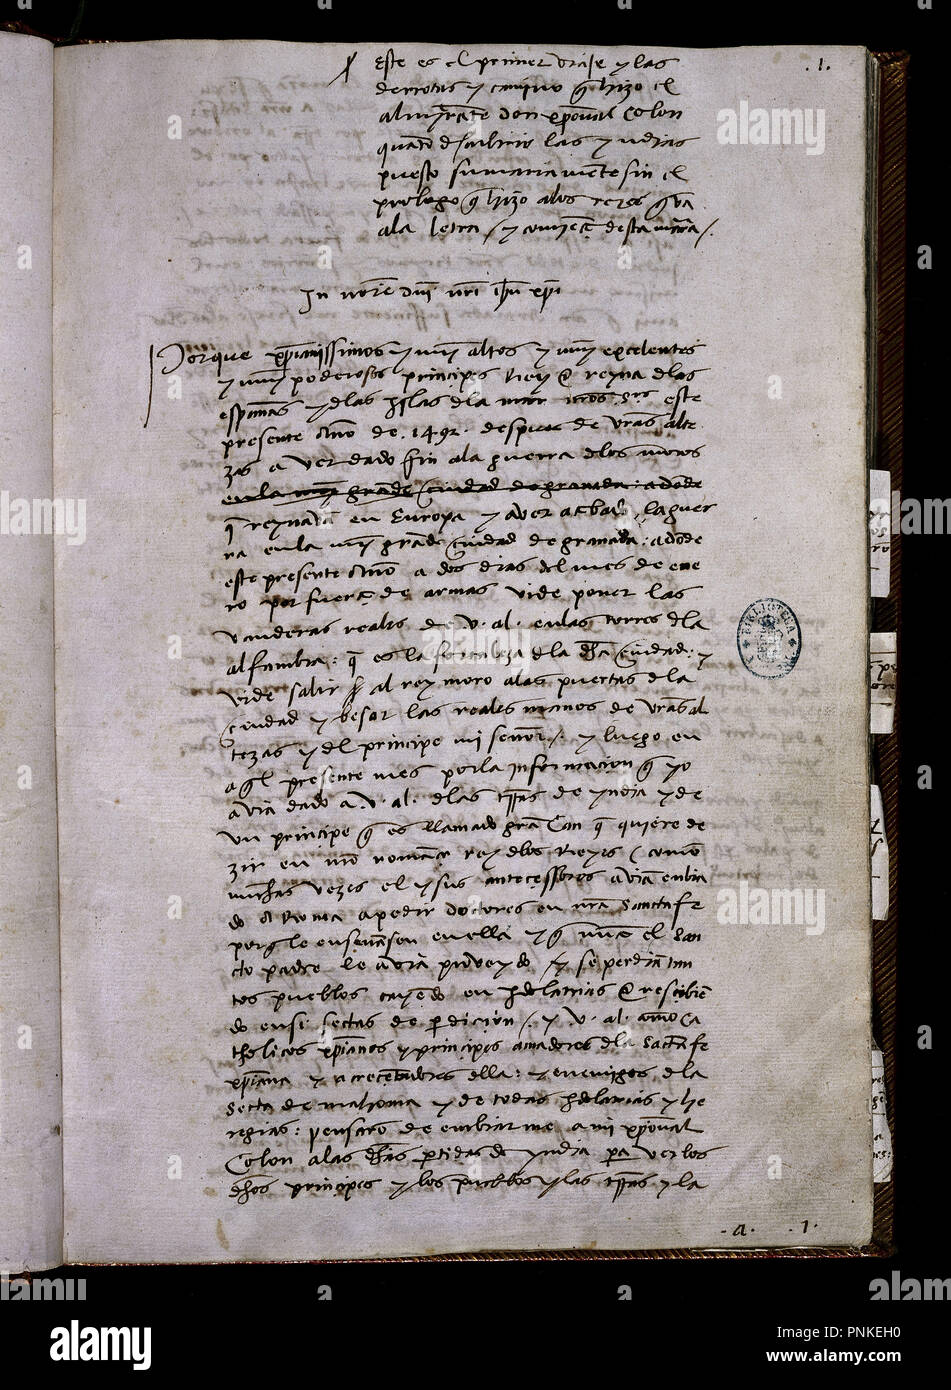 .1.
este es el primer viaje y las
derrotas y camino q̃ hizo el
almirãte don xp̃oual Colon
quãdo descubrio las yndias
puesto sumariamẽte sin el
prologo q̃ hizo a los reyes q̃ va
a la letra / y comiẽça desta mãra /.
In nõie dñi nr̃i ihũ xp̃i
Porque xp̃ianissimos y muy altos y muy excelentes
y muy poderosos principes Rey & reyna d̃ las
españas y de las yslas d̃ la mar nr̃os. srẽs este
presente Año de .1492. despues de vr̃as alte
zas aver dado fin a la guerra d̃los moros
en la muy grande ciudad de granada: adonde
q̃ reynavã en Europa y aver acabado la guer
ra en la muy grande ciudad de granada: adõde
este presente Año a dos dias del mes de ene
ro por fuerça de armas vide poner las
vanderas reales de .v. al. en las torres d̃ la
alfambra: q̃ es la fortaleza d̃ la dh̃a ciudad: y
vide salir al rey moro a las puertas d̃ la
ciudad y besar las reales manos de vr̃as al
tezas y dl principe mi señor /. y luego en
aq̃l presente mes por la informacion q̃ yo
avia dado a .v. al. d̃las trr̃as de yndia y de
vn principe q̃ es llamado grã Can q̃ quiere de
zir en nr̃o romãçe rey dlos Reyes / como
muchas vezes el y sus anteçessores aviã enbia
do a Roma a pedir doctores en nr̃a sancta fe
porq̃ le enseñasen en ella y q̃ nũca el san
cto padre le avia proveydo / y se perdiã tan
tos pueblos cayẽdo en ydolatrias & resçibiẽ
do en si sectas de p̃diçion /. y .v. al. como ca
tholicos xp̃ianos y principes amadores d̃ la sãcta fe
xp̃iana y acreçẽtadores d̃lla: y enemigos d̃ la
secta de mahoma y de todas ydolatrias y he
regias: pensarõ de enbiarme a mi xp̃oual
Colon a las dh̃as p̃tidas de yndia p̃a ver los
dh̃os prinçipes y los pueblos y las trr̃as y la
.a. .1.
BIBLIOTECA
alamy
Image ID: PNKEH0
www.alamy.com